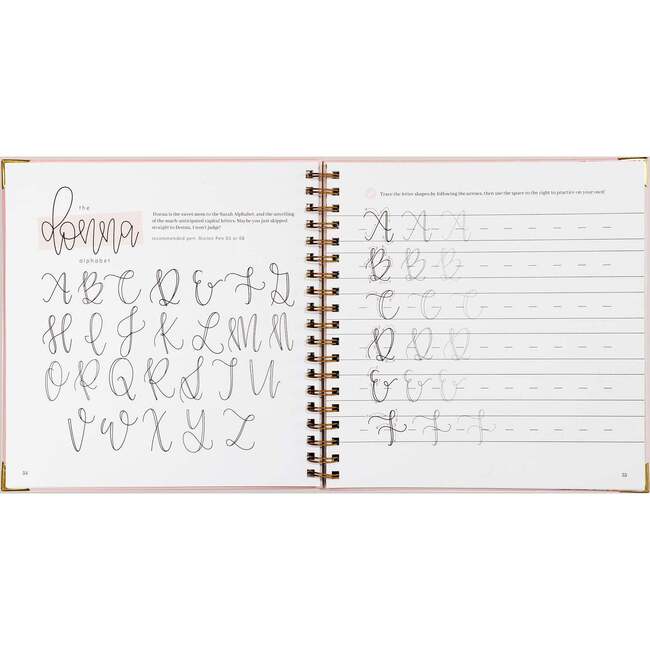 the
donna
alphabet
Donna is the sweet mom to the Sarah Alphabet, and the unveiling
of the much-anticipated capital letters. Maybe you just skipped
straight to Donna, I won't judge!
recommended pen:
A B C D E F G
H I J K L M N
O P Q R S T U
V W X Y Z
52
Trace the letter shapes by following the arrows, then use the space to the right to practice on your own!
A A A
B B B
C C C
D D D
E E E
F F F
53